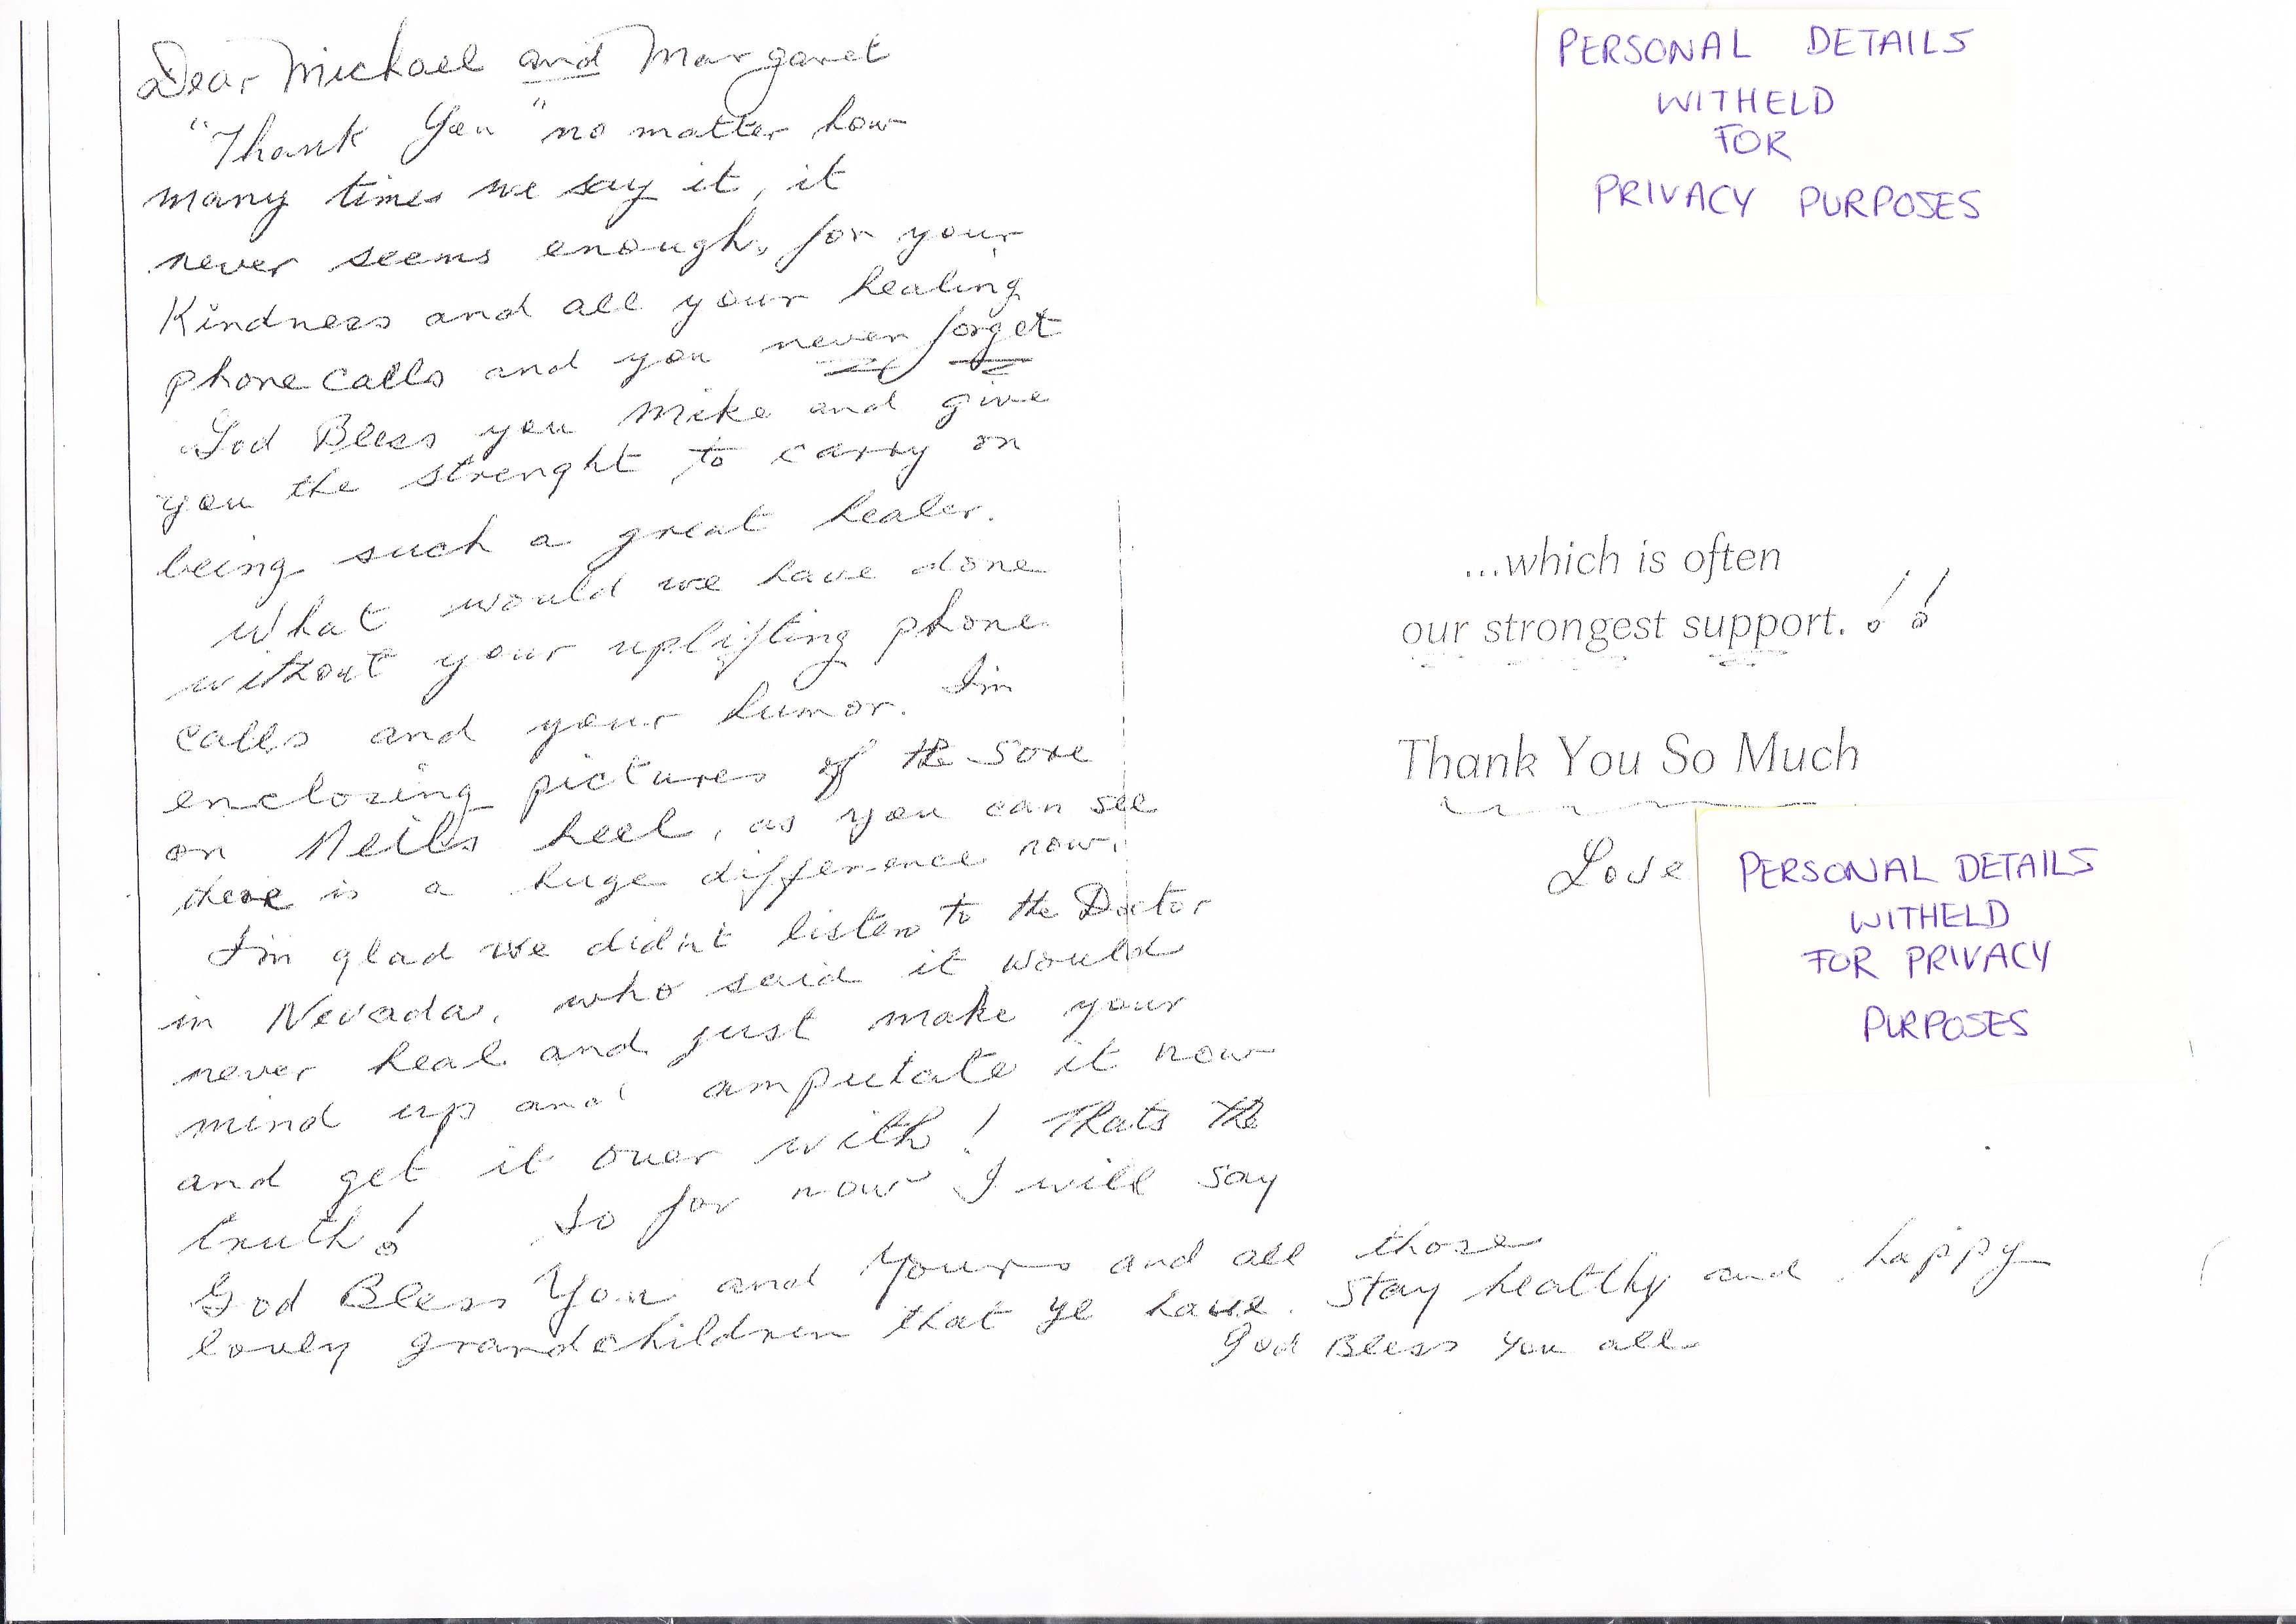 Dear Michael and Margaret
"Thank You" no matter how
many times we say it, it
never seems enough, for your
Kindness and all your healing
phone calls and you never forget
God Bless you Mike and give
you the strenght to carry on
being such a great healer.
What would we have done
without your uplifting phone
calls and your humor. I'm
enclosing pictures of the sore
on Neils heel, as you can see
there is a huge difference now.
I'm glad we didn't listen to the Doctor
in Nevada, who said it would
never heal and just make your
mind up and amputate it now
and get it over with! Thats the
truth! So for now I will say
God Bless You and Yours and all those
lovely grandchildren that ye have. Stay healthy and happy
God Bless You all
PERSONAL DETAILS
WITHELD
FOR
PRIVACY PURPOSES
...which is often
our strongest support. !!
Thank You So Much
Love
PERSONAL DETAILS
WITHELD
FOR PRIVACY
PURPOSES